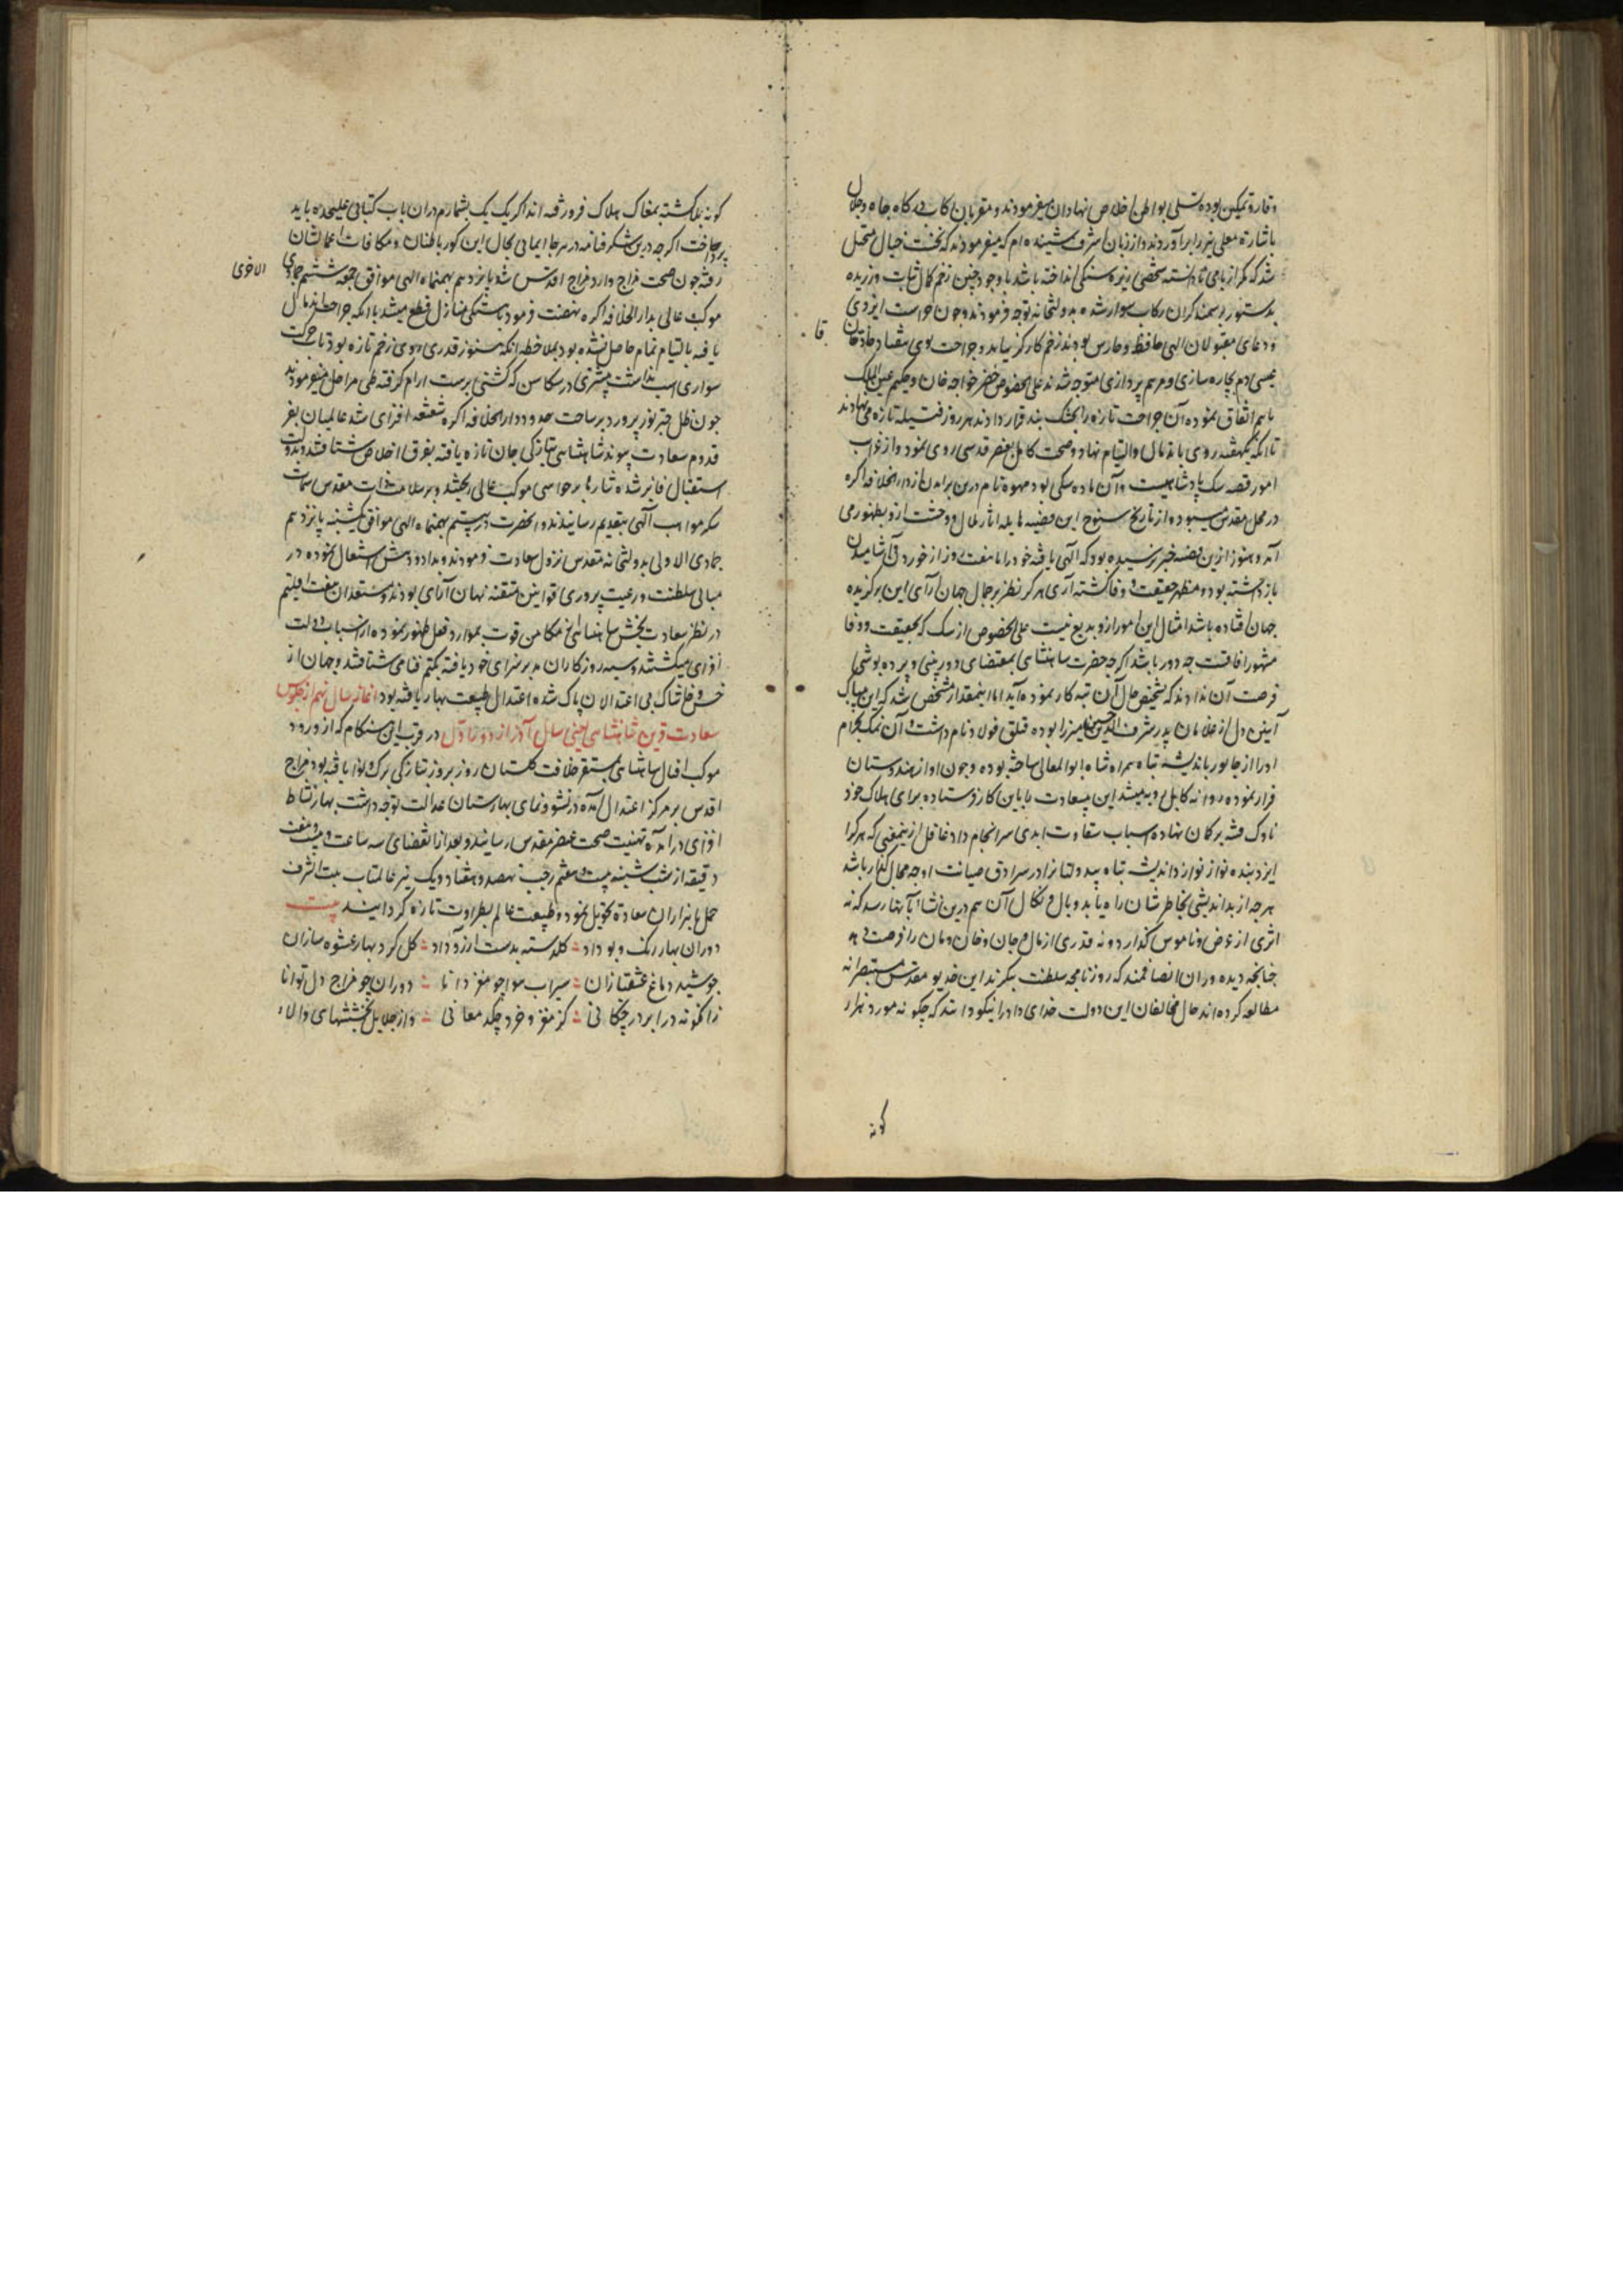 وقار و تمکین بوده تسلی بواطن اخلاص نهادان میفرمودند و مقربان رکاب درکاه جاه و جلال
باشاره معلی تیر را برآوردند و از زبان اشرف شنیده ام که میفرمودند که نخست خیال متخیل
شد که مکر از بامی نادانسته شخصی ریزه سنکی انداخته باشد با وجود چنین زخم کمال ثبات ورزیده
بدستور بر سمند کران رکاب سوار شده بدولتخانه توجه فرمودند و چون حراست ایزدی
و دعای مقبولان الهی حافظ و حارس بودند زخم کارکر نیامد و جراحت بوی
بقا
عیسی دم بچاره سازی و مرهم پردازی متوجه شدند علی الخصوص خضر خواجه خان و حکیم عین الملک
باهم اتفاق نموده آن جراحت تازه را بخشک بند قرار دادند هر روز فتیله تازه می نهادند
تا آنکه بیکهفته روی باندمال و التیام نهاد و صحت کامل بعنصر قدسی روی نمود و از غرایب
امور قصه سک پادشاهیست و آن ماده سکی بود مهوه نام درین برآمدن از دار الخلافه اکره
در محل مقدس میبود و از تاریخ سنوح این قضیه هایله آثار ملال و وحشت ازو بظهور می
آمد و هنوز ازین قصه خبر نرسیده بود که آلهی یافته خود را تا هفت روز از خوردن و آشامیدن
بازداشته بود و مظهر حقیقت و وفا کشته آری هر کرا نظر بر جمال جهان آرای این برکزیده
جهان افتاده باشد امثال این امور ازو بدیع نیست علی الخصوص از سک که بحقیقت و وفا
مشهور آفاقست چه دور باشد اکرچه حضرت شاهنشاهی بمقتضای دوربینی و پرده پوشی
فرصت آن ندادند که تشخیص حال آن تبه کار نموده آید اما اینمقدار مشخص شد که این بیباک
آیین دل از غلامان پدر شرف الدین حسین میرزا بوده قتلق فولاد نام داشت و آن نمک بحرام
او را از جالور باندیشه تباه همراه شاه ابوالمعالی ساخته بوده و چون او از هندوستان
فرار نموده روانه کابل میشد این بیسعادت را باین کار فرستاده برای هلاک خود
ناوک فتنه بر کمان نهاده اسباب شقاوت ابدی سرانجام داد غافل ازینمعنی که هر کرا
ایزد بنده نواز نوازد اندیشه تباه بیدولتانرا در سرادق صیانت او چه مجال کذار باشد
هرچه از بداندیشی بخاطر شان راه یابد وبال و نکال آن هم درین نشاء بآنها رسد که نه
اثری از عرض و ناموس کذارد و نه قدری از مال و جان و خان و مان را فرصت دهد
چنانچه دیده وران انصافمند که روزنامچه سلطنت یکرند این خدیو مقدس مستبصرانه
مطالعه کرده اند حال مخالفان این دولت خدای داد را نیکو دانند که چکونه مورد هزار
کونه
کونه بلا کشته بمغاک هلاک فرو رفته اند اکر یک یک بشمارم دران باب کتابی علیحده باید
پرداخت اکرچه درین شکرفنامه در هر جا ایمایی بحال این کور باطنان و مکافات اعمالشان
رفته چون صحت مزاج وارد مزاج اقدس شد پانزدهم بهمن ماه الهی موافق جمعه ششم جمادی
الاخری
موکب عالی بدار الخلافه اکره نهضت فرمود باهستکی منازل قطع میشد با آنکه جراحت اندمال
یافته بالتیام تمام حاصل نشده بود بملاحظه آنکه هنوز قدری روی زخم تازه بود تاب حرکت
سواری اسب نداشت بیشتری در سکاسن که کشتی برست آرام کرفته طی مراحل میفرمودند
چون ظل چتر نور پرور بر ساحت حدود دار الخلافه اکره شعشعه افزای شد عالمیان بفر
قدوم سعادت پیوند شاهنشاهی بتازکی جان تازه یافته بفرق اخلاص شتافتند و بدولت
استقبال فایز شده نثارها بر حواشی موکب عالی ریختند و بر سلامت ذات مقدس سمات
شکر مواهب آلهی بتقدیم رسانیدند و آنحضرت در بیستم بهمن ماه الهی موافق یکشنبه پانزدهم
جمادی الاولی بدولتخانه مقدس نزول سعادت فرمودند و بداد و دهش اشتغال نموده در
مبانی سلطنت و رعیت پروری قوانین متقنه نهان آرای بودند و مستعدان هفت اقلیم
در نظر سعادت بخش شاهنشاهی از مکامن قوت بموارد فعل ظهور نموده از اسباب دولت
افزای میکشتند و سیه روزکاران مدبر سزای خود یافته بکتم فنا می شتافتند و جهان از
خس و خاشاک بی اعتدالان پاک شده اعتدال طبیعت بهار یافته بود آغاز سال نهم از جلوس
سعادت قرین شاهنشاهی یعنی سال آذر از دور اول در قرب این هنکام که از ورود
موکب اقبال شاهنشاهی بمستقر خلافت کلستان روز بروز بتازکی برک و نوا یافته بود و مزاج
اقدس بر مرکز اعتدال آمده در نشو و نمای بهارستان عدالت توجه داشت بهار نشاط
افزای درآمده تهنیت صحت عنصر مقدس رسانید و بعد از انقضای سه ساعت و بیست و هفت
دقیقه از شب شنبه بیست و هفتم رجب نهصد و هفتاد و یک نیر عالمتاب بیت الشرف
حمل با هزاران سعادت تحویل نمود و طبیعت عالم بطراوت تازه کردانید بیت
دوران بهار رنک و بو داد کلدسته بدست آرزو داد کل کرد بهار عشوه سازان
جوشید دماغ عشقبازان سیراب هوا چو مغز دانا دوران چو مزاج دل توانا
زانکونه در ابر در چکانی کز مغز خرد چکد معانی و از جلایل بخششهای والاء